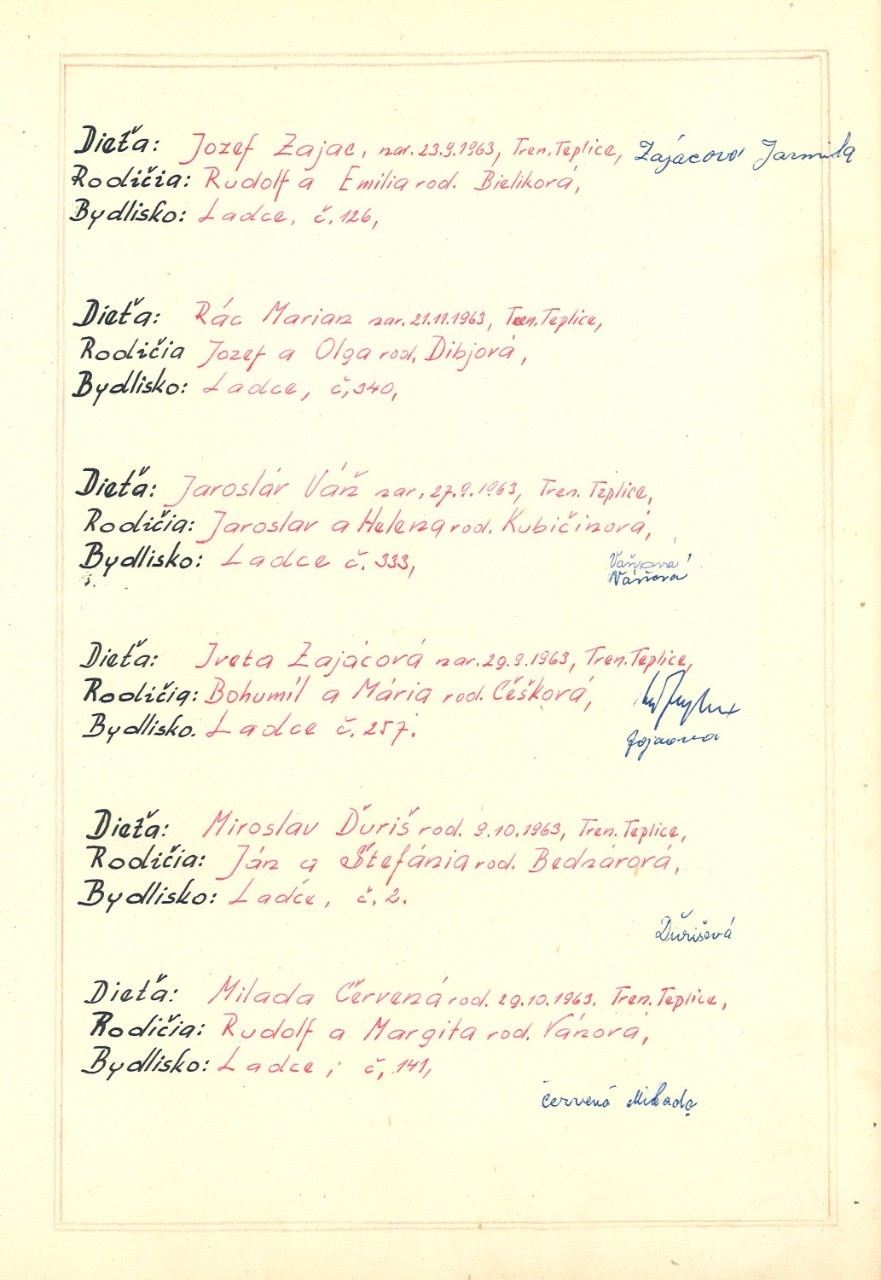 Dieťa: Jozef Zajac, nar. 23.9.1963, Tren. Teplice, Zajácová Jarmila
Rodičia: Rudolf a Emilia rod. Bieliková,
Bydlisko: Ladce, č. 126,
Dieťa: Rác Marian nar. 21.11.1963, Tren. Teplice,
Rodičia Jozef a Olga rod. Dibjová,
Bydlisko: Ladce, č, 340,
Dieťa: Jaroslár Váň nar, 27.9.1963, Tren. Teplice,
Rodičia: Jaroslav a Helena rod. Kubičinová,
Bydlisko: Ladce č. 333,
Váňová
Váňova
Dieťa: Iveta Zajácová nar. 29.9.1963, Tren. Teplice,
Rodičia: Bohumíl a Mária rod. Cěšková,
Bydlisko. Ladce č. 257.
Dieťa: Miroslav Ďuriš rod. 9.10.1963, Tren. Teplice,
Rodičia: Ján a Štefánia rod. Bednárová,
Bydlisko: Ladce, č. 2.
Ďurišová
Dieťa: Milada Červená rod. 29.10.1963. Tren. Teplice,
Rodičia: Rudolf a Margita rod. Vánová,
Bydlisko: Ladce, č, 141,
červená Milada